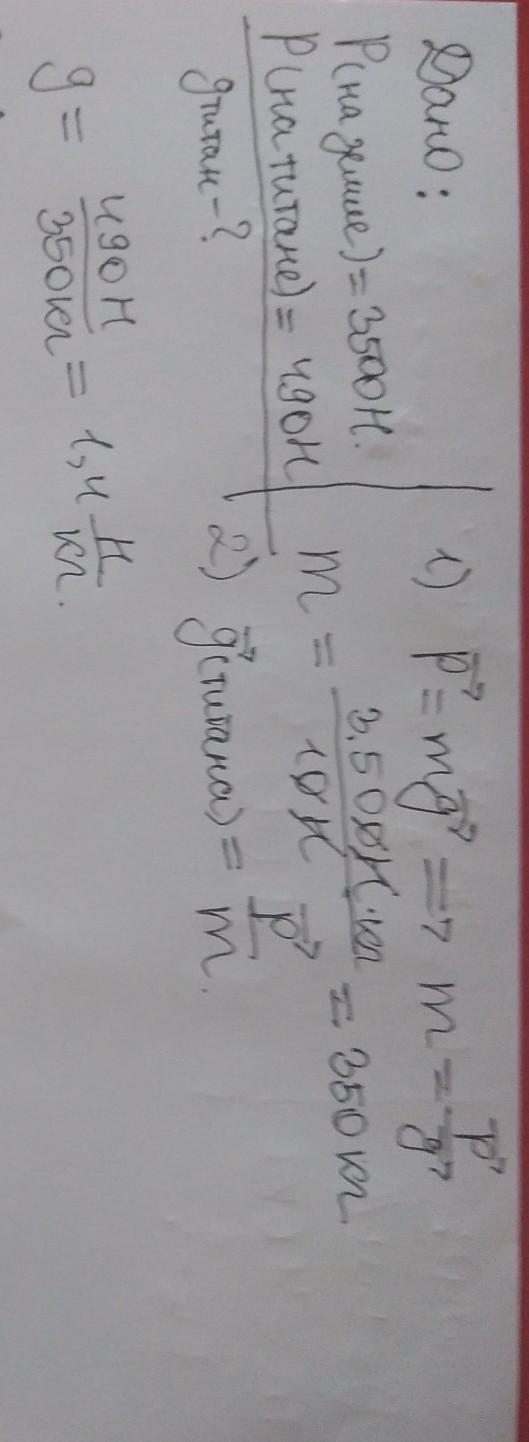 Дано:
P(на земле) = 3500Н.
P(на титане) = 490Н
g титан - ?
1) p⃗ = mg⃗ => m = p⃗/g⃗
m = 3500Н·кг/10Н = 350кг
2) g⃗(титана) = p⃗/m.
g = 490Н/350кг = 1,4 Н/кг.